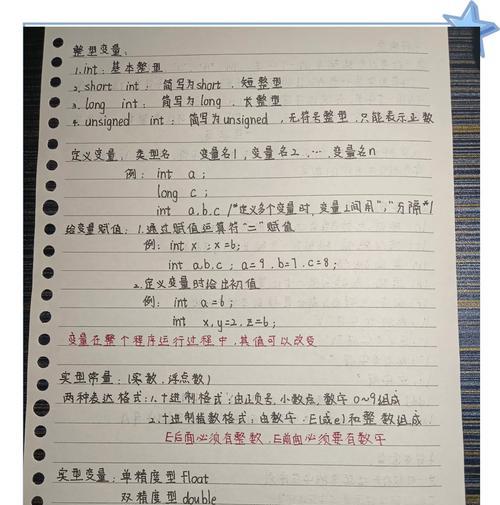 整型变量：
1. int：基本整型
2. short int：简写为short，短整型
3. long int：简写为long，长整型
4. unsigned int：简写为unsigned，无符号整型，只能表示正数
定义变量：类型名 变量名1，变量名2，…，变量名n
例：int a；
long c；
int a.b.c /*定义多个变量时，变量之间用“，”分隔*/
给变量赋值：1.通过赋值运算符“=”赋值
例：int x ；x=6；
int a.b.c；a=9，b=7，c=8；
2.定义变量时给出初值
例：int a=6；
int x,y=2,z=6；
变量在整个程序运行过程中，其值可以改变
实型常量：（实数，浮点数）
两种表达格式：1.十进制格式：由正负号，小数点，数字0~9组成
2.十进制指数格式：由数字，E(或e)和整数组成
E后面必须有整数，E前面必须要有数字
实型变量：单精度型 float
双精度型 double